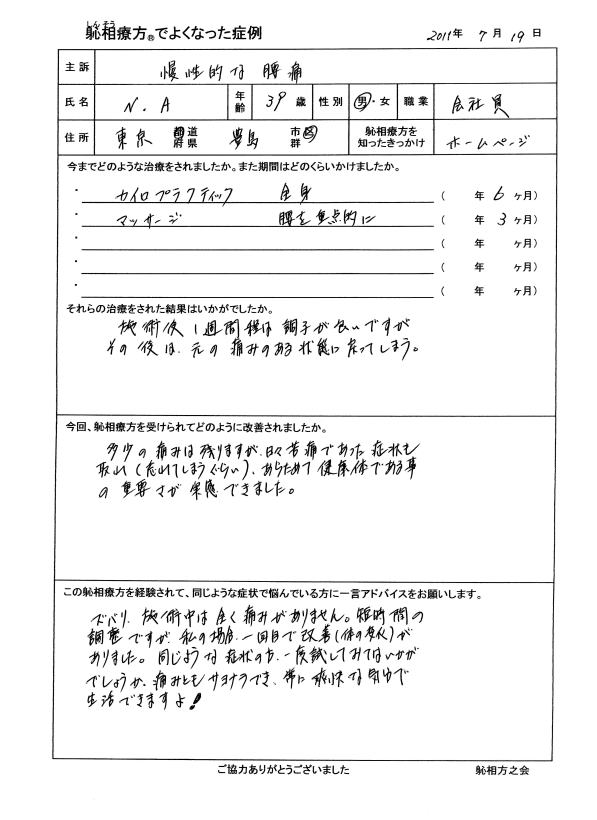 しんそう
恥相療方®でよくなった症例 2011年 7月 19日
主訴 慢性的な 腰痛
氏名 N.A 年齢 39歳 性別 男・女 職業 会社員
住所 東京 都道府県 豊島 市区郡 恥相療方を知ったきっかけ ホームページ
今までどのような治療をされましたか。また期間はどのくらいかけましたか。
・ カイロプラクティック 全身 ( 年 6 ヶ月)
・ マッサージ 腰を重点的に ( 年 3 ヶ月)
・ ( 年 ヶ月)
・ ( 年 ヶ月)
・ ( 年 ヶ月)
それらの治療をされた結果はいかがでしたか。
施術後1週間程は調子が良いですが
その後は、元の痛みのある状態に戻ってしまう。
今回、恥相療方を受けられてどのように改善されましたか。
多少の痛みは残りますが、日々苦痛であった症状も
取れ(忘れてしまうぐらい)、あらためて健康体である事
の重要さが実感できました。
この恥相療方を経験されて、同じような症状で悩んでいる方に一言アドバイスをお願いします。
ズバリ、施術中は全く痛みがありません。短時間の
調整ですが、私の場合、一回目で改善(体の変化)が
ありました。同じような症状の方、一度試してみてはいかが
でしょうか。痛みともサヨナラでき、常に爽快な気分で
生活できますよ!
ご協力ありがとうございました 恥相方之会